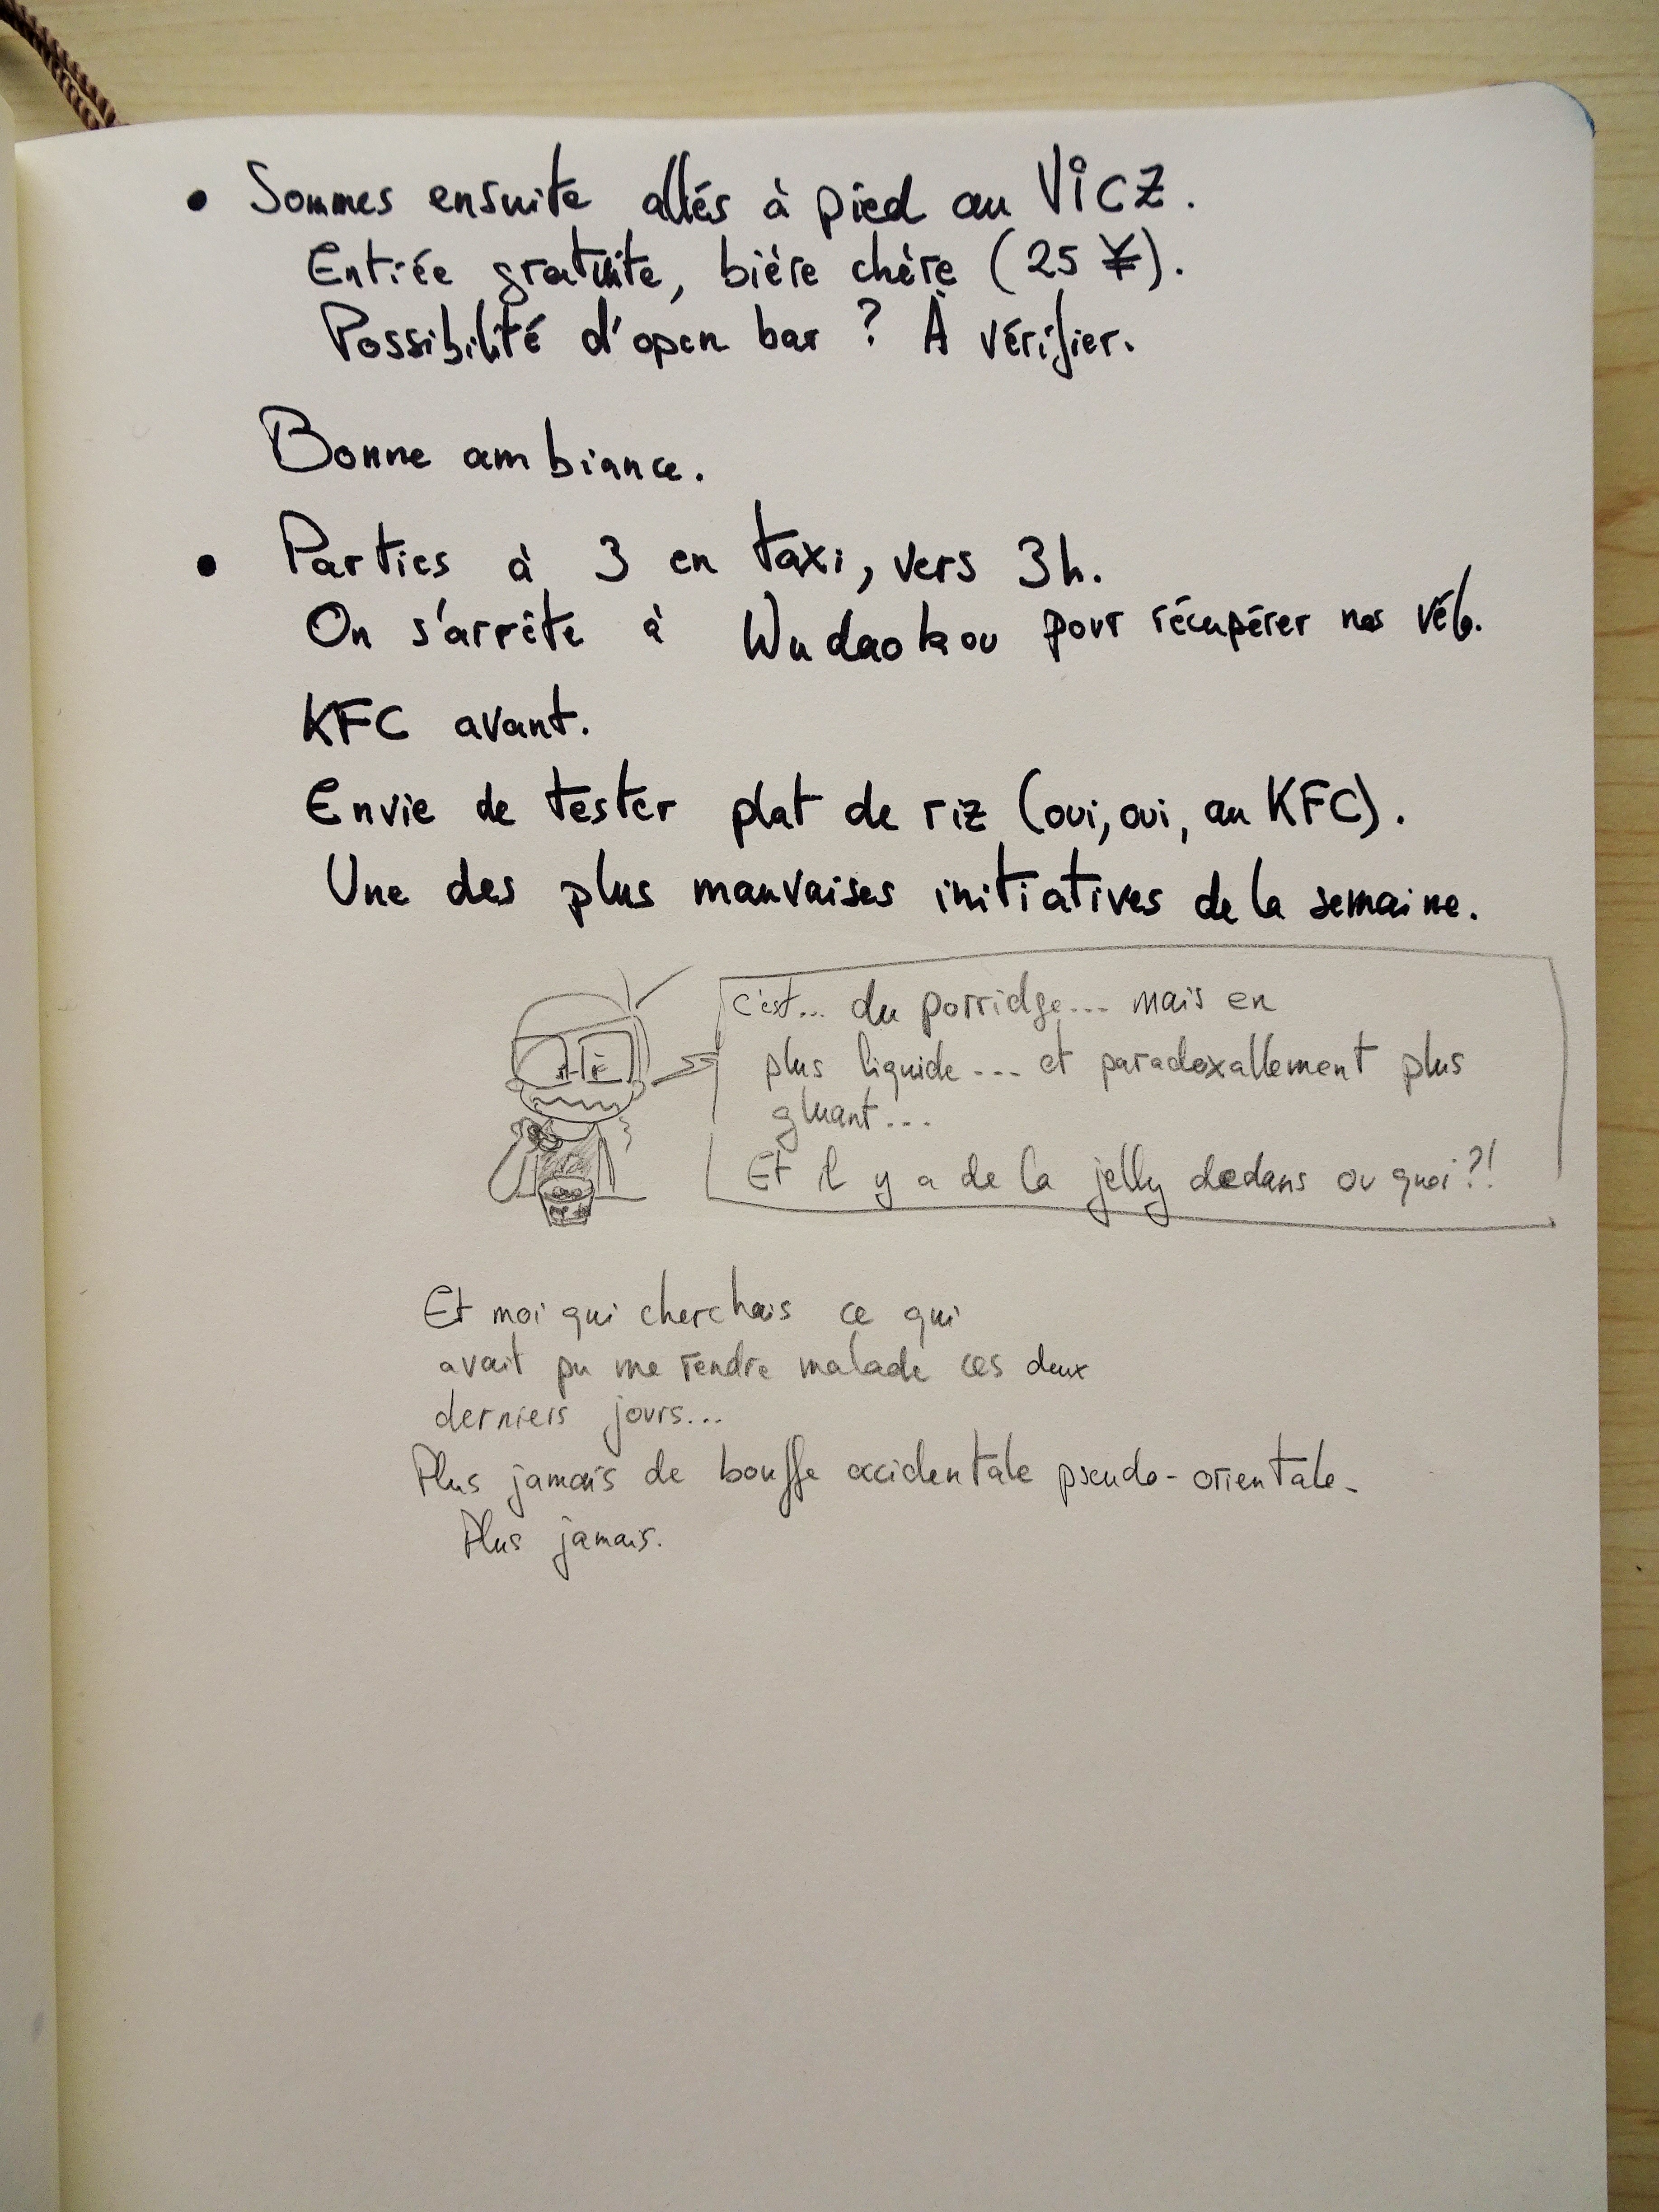 • Sommes ensuite allés à pied au VicZ.
Entrée gratuite, bière chère (25 ¥).
Possibilité d'open bar ? À vérifier.
Bonne ambiance.
• Parties à 3 en taxi, vers 3h.
On s'arrête à Wudaokou pour récupérer nos vélo.
KFC avant.
Envie de tester plat de riz (oui, oui, au KFC).
Une des plus mauvaises initiatives de la semaine.
c'est... du porridge... mais en
plus liquide... et paradoxallement plus
gluant...
Et il y a de la jelly dedans ou quoi ?!
Et moi qui cherchais ce qui
avait pu me rendre malade ces deux
derniers jours...
Plus jamais de bouffe occidentale pseudo-orientale.
Plus jamais.